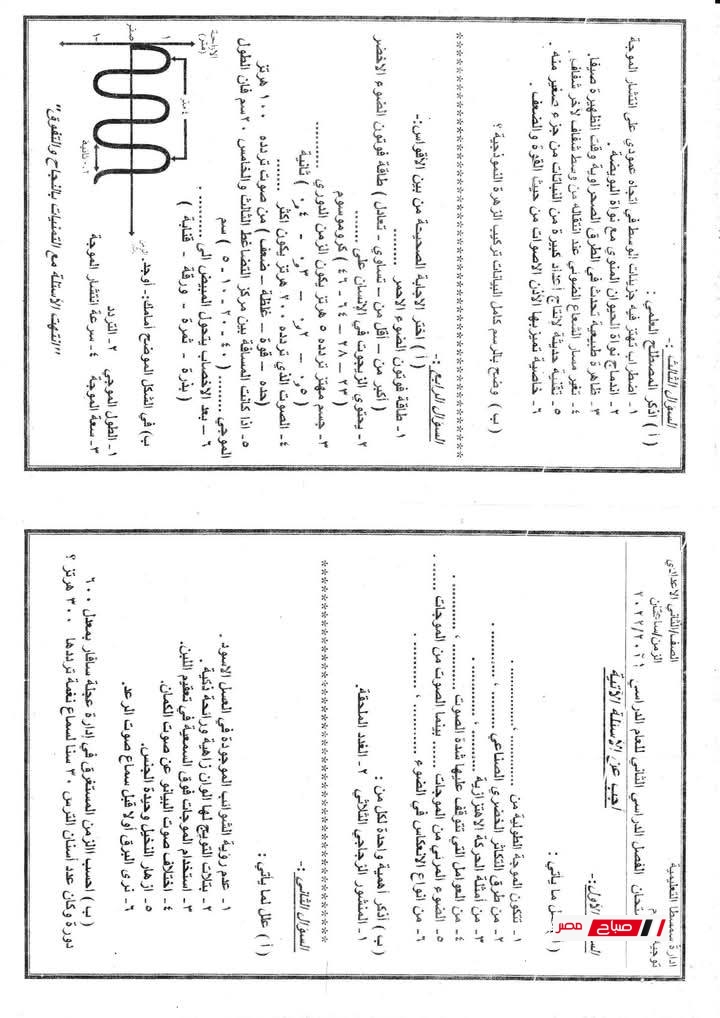 إدارة سمسطا التعليمية
الصف/الثاني الاعدادي
امتحان الفصل الدراسي الثاني للعام الدراسي ٢٠٢١/٢٠٢٢
الزمن/ساعتان
أجب عن الاسئلة الآتية
صباح مصر
السؤال الأول :-
١- تتكون الموجة الطولية من .......... ، ..........
٢- من طرق التكاثر الخضري الصناعي ........ ، ........
٣- من أمثلة الحركة الاهتزازية ........ ، ........
٤- من العوامل التي تتوقف عليها شدة الصوت ........ ، ........
٥- الضوء المرئي من الموجات ........ بينما الصوت من الموجات ........
٦- من أنواع الانعكاس في الضوء ........ ، ........
( ب ) أذكر أهمية واحدة لكل من :
١- المنشور الزجاجي الثلاثي ٢- الغدد الملحقة.
********************************
السؤال الثاني :-
( أ ) علل لما يأتي :
١- عدم رؤية الشوائب الموجودة في العسل الاسود .
٢- بتلات التويج لها ألوان زاهية ورائحة ذكية .
٣- استخدام الموجات فوق السمعية في تعقيم اللبن.
٤- اختلاف صوت البيانو عن صوت الكمان.
٥- أزهار النخيل وحيدة الجنس.
٦- نرى البرق أولا قبل سماع صوت الرعد.
( ب ) احسب الزمن المستغرق في إدارة عجلة سافار بمعدل ٦٠٠
دورة وكان عدد أسنان الترس ٣٠ سنا لسماع نغمة ترددها ٣٠٠ هرتز ؟
السؤال الثالث :-
( أ ) اذكر المصطلح العلمي :
١- اضطراب تهتز فيه جزيئات الوسط في اتجاه عمودي على انتشار الموجة
٢- اندماج نواة الحيوان المنوي مع نواة البويضة .
٣- ظاهرة طبيعية تحدث في الطرق الصحراوية وقت الظهيرة صيفا.
٤- تغير مسار الشعاع الضوئي عند انتقاله من وسط شفاف لآخر شفاف .
٥- تقنية حديثة لانتاج أعداد كبيرة من النباتات من جزء صغير منه .
٦- خاصية تميز بها الأذن الاصوات من حيث القوة والضعف .
( ب ) وضح بالرسم كامل البيانات تركيب الزهرة النموذجية ؟
********************************
السؤال الرابع :-
( أ ) اختر الإجابة الصحيحة من بين الأقواس:-
١- طاقة فوتون الضوء الاحمر ........ طاقة فوتون الضوء الاخضر
( أكبر من – أقل من – تساوي - تعادل )
٢- يحتوي الزيجوت في الإنسان على ........ كروموسوم
( ٢٣ – ٢٨ – ٦٤ - ٤٦ )
٣- جسم مهتز تردده ٥ هرتز يكون الزمن الدوري ........
( ٥و. – ٢و. – ٣و. - ٤و. ) ثانية
٤- الصوت الذي تردده ٢٠٠ هرتز يكون أكثر ........ من صوت تردده ١٠٠ هرتز
( حده – قوة – غلظة – ضعف )
٥- اذا كانت المسافة بين مركز التضاغط الثالث والخامس ٢٠سم فان الطول
الموجي ........ ( ٤٠ - ٢٠ - ١٠ - ٥ ) سم
٦- بعد الاخصاب يتحول المبيض الى ........
( بذرة - ثمرة - ورقة - قنابة )
ب) في الشكل الموضح أمامك:- أوجد:
١- الطول الموجي ٢- التردد
٣- سعة الموجة ٤- سرعة انتشار الموجة
الازاحة
(متر)
١
صفر
-١
"انتهت الأسئلة مع التمنيات بالنجاح والتفوق"